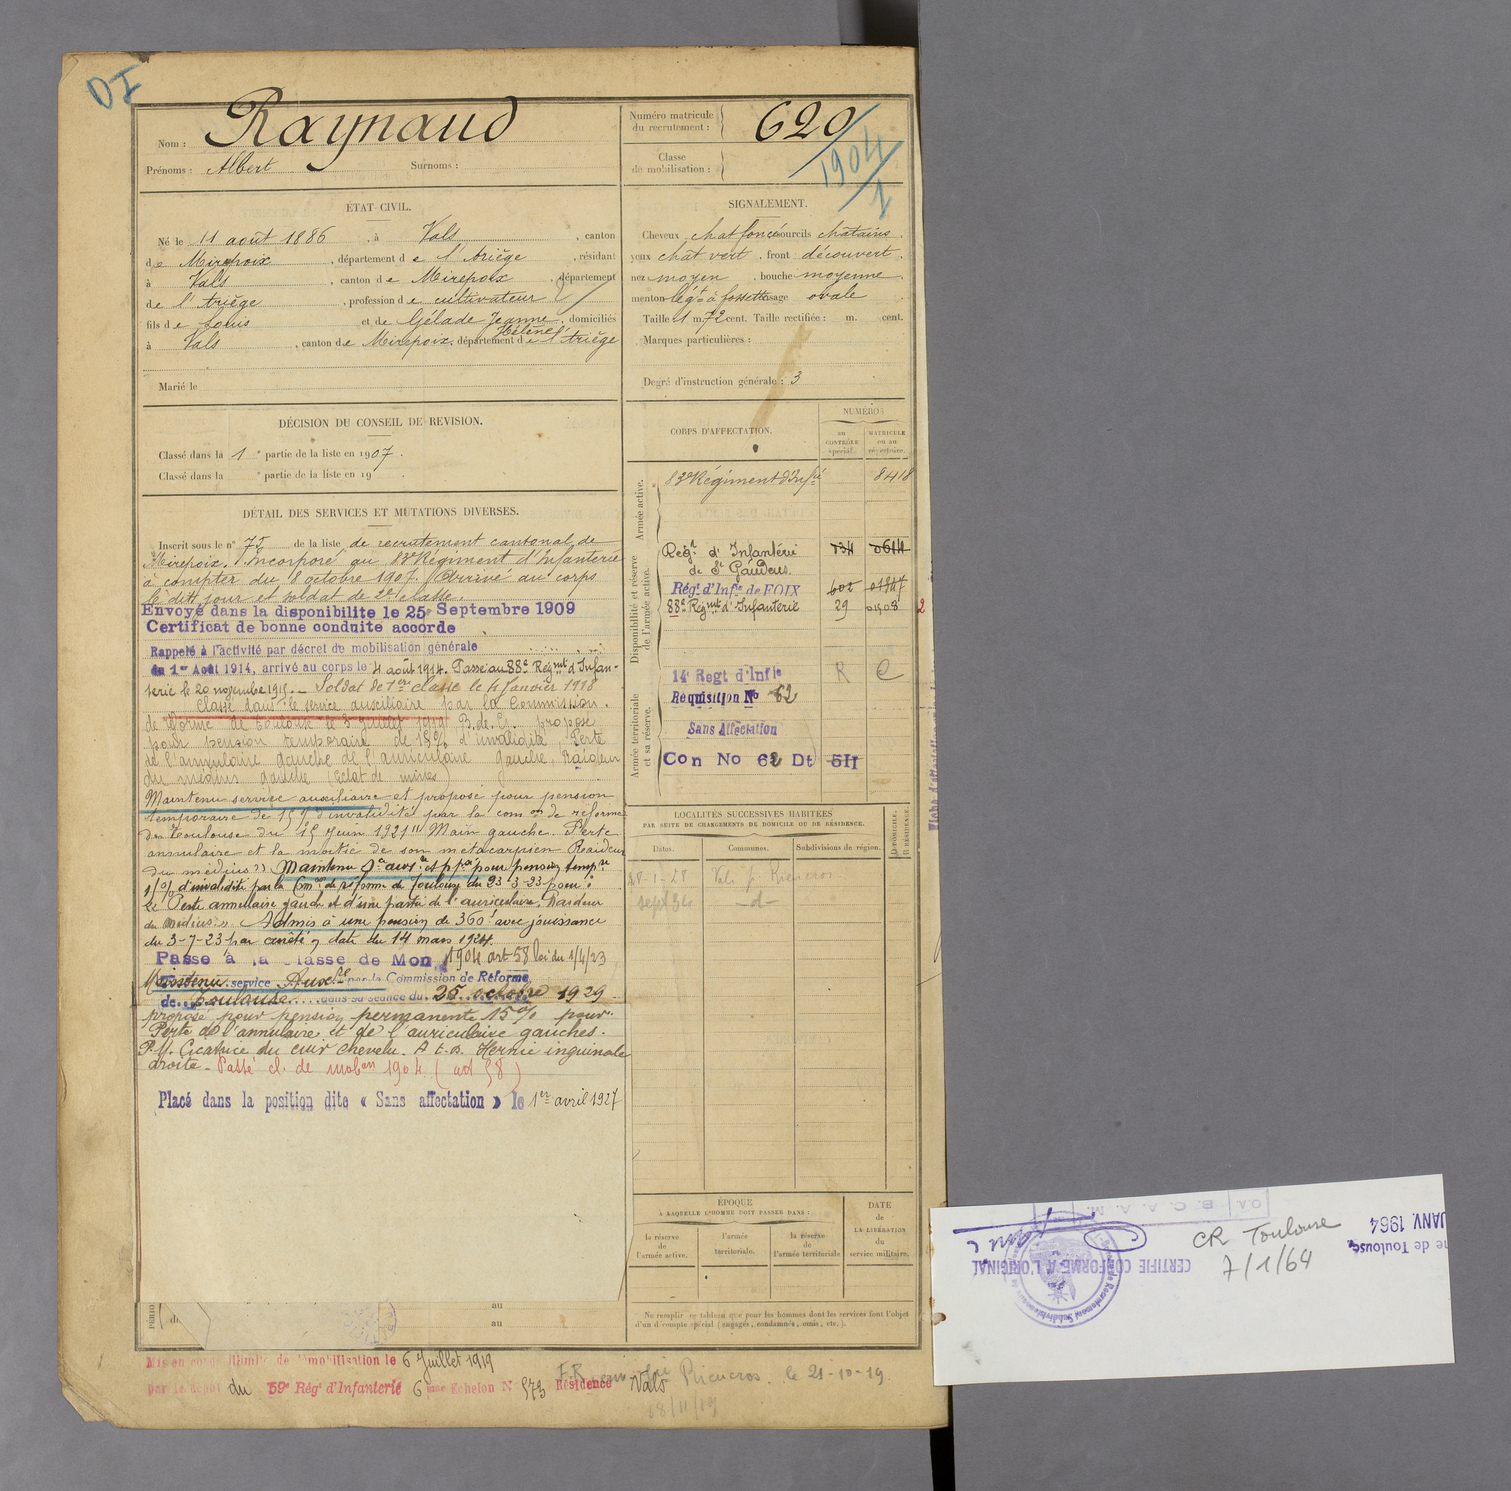 DI
Nom : Raynaud
Prénoms : Albert Surnoms :
Numéro matricule du recrutement : 620
Classe de mobilisation : 1904/1
ÉTAT CIVIL.
Né le 11 août 1886, à Vals, canton
de Mirepoix, département de l'Ariège, résidant
à Vals, canton de Mirepoix, département
de l'Ariège, profession de cultivateur
fils de Louis et de Gélade Jeanne Hélène, domiciliés
à Vals, canton de Mirepoix, département de l'Ariège
Marié le
SIGNALEMENT.
Cheveux chat foncé sourcils chatains.
yeux chât vert, front découvert,
nez moyen, bouche moyenne
menton légt à fossette visage ovale
Taille 1 m. 72 cent. Taille rectifiée : m. cent.
Marques particulières :
Degré d'instruction générale : 3
DÉCISION DU CONSEIL DE REVISION.
Classé dans la 1e partie de la liste en 1907.
Classé dans la e partie de la liste en 19 .
DÉTAIL DES SERVICES ET MUTATIONS DIVERSES.
Inscrit sous le n° 75 de la liste de recrutement cantonal de
Mirepoix. Incorporé au 83e Régiment d'Infanterie
à compter du 8 octobre 1907. Arrivé au corps
le dit jour et soldat de 2e classe.
Envoyé dans la disponibilite le 25 Septembre 1909
Certificat de bonne conduite accorde
Rappelé à l'activité par décret de mobilisation générale
du 1er Août 1914, arrivé au corps le 4 août 1914. Passé au 88e Régmt d'Infan-
terie le 20 novembre 1915. Soldat de 1ere classe le 4 Janvier 1918
Classé dans le service auxiliaire par la Commission
de réforme de Toulouse le 3 juillet 1919 B. de G. proposé
pour pension temporaire de 15% d'invalidité, Perte
de l'annulaire gauche de l'auriculaire gauche, Raideur
du médius gauche (éclat de mines)
Maintenu service auxiliaire et proposé pour pension
temporaire de 15% d'invalidité par la comon de réforme
de Toulouse du 15 Juin 1921 "Main gauche. Perte
annulaire et la moitié de son métacarpien Raideur
du médius" Maintenu Sce auxre et ppsé pour pension tempre
d'invalidité par la Com de réforme de Toulouse du 23-3-23 pour :
Perte annulaire gauche et d'une partie de l'auriculaire. Raideur
du médius". Admis à une pension de 360f avec jouissance
du 3-7-23 par arrêté en date du 14 mars 1924.
Passe à la classe de Mon 1904 art 58 loi du 1/4/23
Maintenu service Auxre par la Commission de Réforme
de Toulouse dans sa séance du 25 octobre 1929
proposé pour pension permanente 15% pour.
Perte de l'annulaire et de l'auriculaire gauches.
P.M. Cicatrice du cuir chevelu. A.t.B. Hernie inguinale
droite - Passé cl. de mobon 1904 (art 58)
Placé dans la position dite « Sans affectation » le 1er avril 1927
CORPS D'AFFECTATION.
NUMÉRO
au CONTRÔLE spécial.
MATRICULE ou au répertoire.
Armée active.
83e Régiment d'Infie 8418
Disponibilité et réserve de l'armée active.
Régt d'Infanterie de St Gaudens. 034 0614
Régt d'Infie de FOIX 602 01847
88e Régmt d'Infanterie 29 01508 2
Armée territoriale et sa réserve.
14e Regt d'Infie R C
Réquisition No 62
Sans Affectation
Con No 62 Dt 5II
LOCALITÉS SUCCESSIVES HABITÉES
PAR SUITE DE CHANGEMENTS DE DOMICILE OU DE RÉSIDENCE.
Dates. Communes. Subdivisions de région. D DOMICILE. R RÉSIDENCE.
28-1-28 Vals p. Rieucros
sept 34 -d-
ÉPOQUE
À LAQUELLE L'HOMME DOIT PASSER DANS :
la réserve de l'armée active.
l'armée territoriale.
la réserve de l'armée territoriale
DATE de LA LIBÉRATION du service militaire.
au
au
Ne remplir ce tableau que pour les hommes dont les services font l'objet
d'un décompte spécial (engagés, condamnés, omis, etc.).
Mis en congé illimité de démobilisation le 6 Juillet 1919
par le dépot du 59e Régt d'Infanterie 6eme Echelon N° 573 Résidence Vals
Rieucros. le 21-10-19.
18/11/19
O.A B.C.A.A.M.
CERTIFIE CONFORME A L'ORIGINAL
CR Toulouse
7/1/64
JANV. 1964
ne de Toulouse,